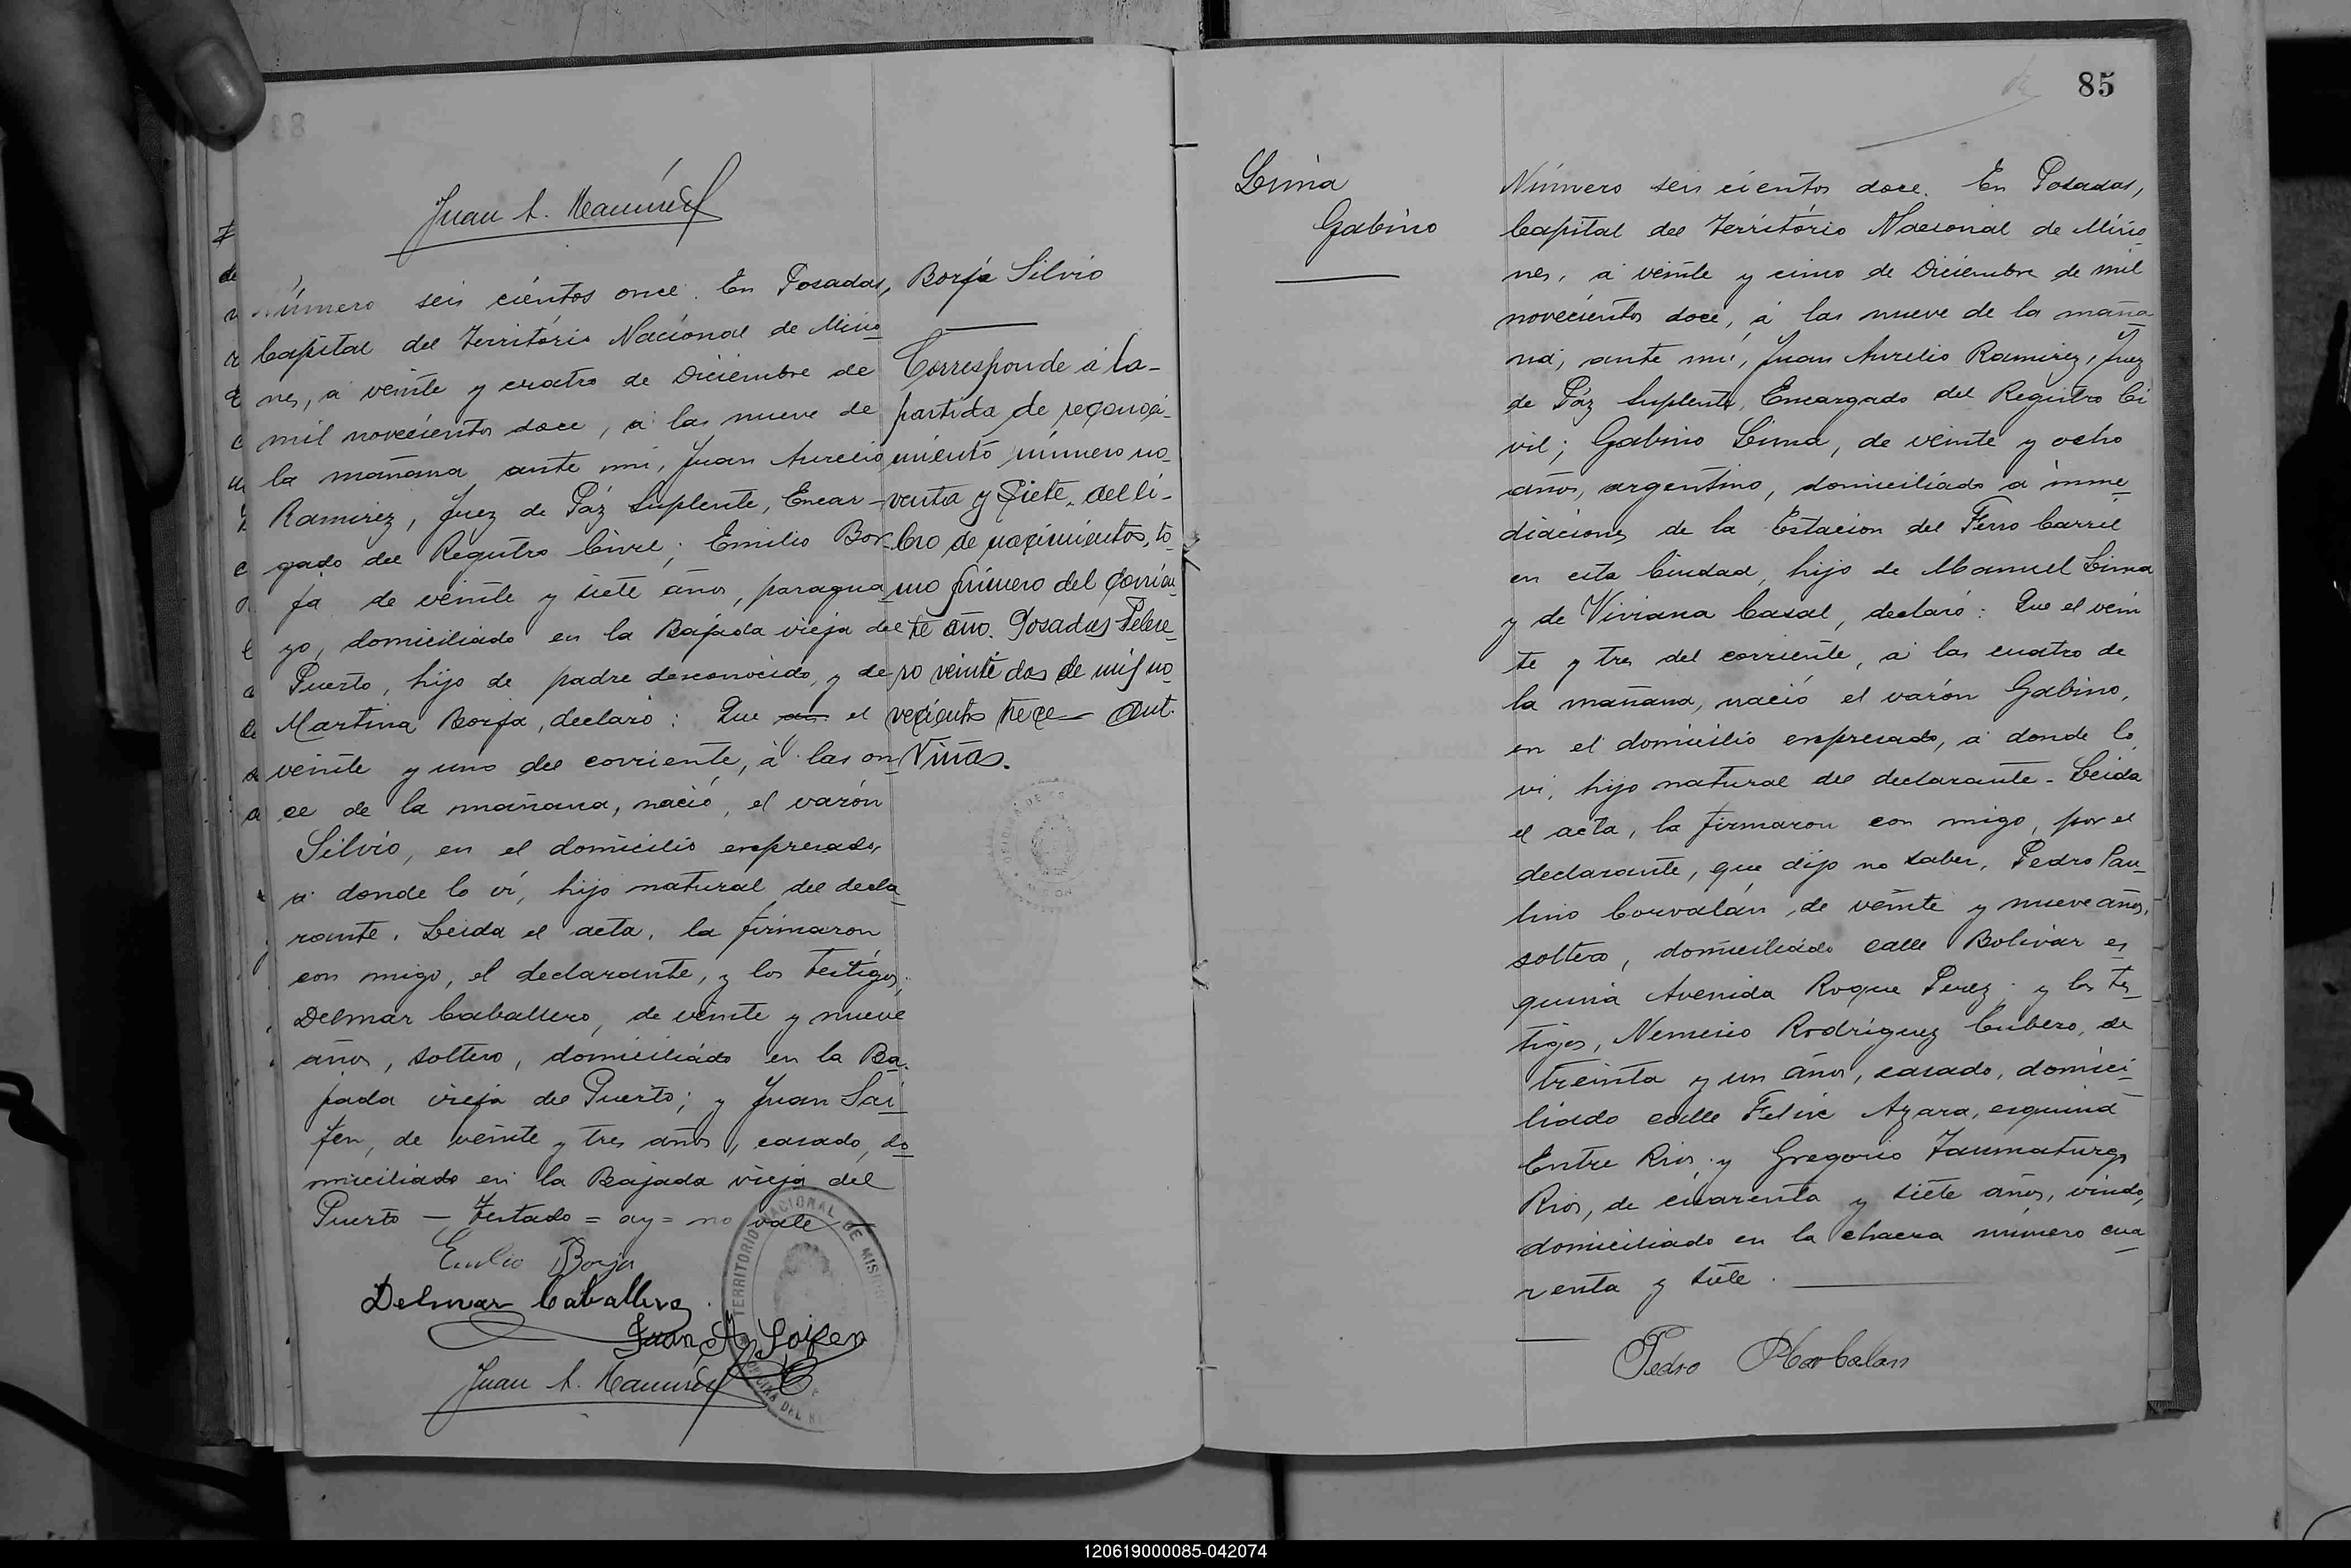 Juan A. Ramírez
Número seis cientos once. En Posadas,
Capital del Território Nacional de Misio
nes, á veinte y cuatro de Diciembre de
mil novecientos doce, á las nueve de
la mañana ante mi, Juan Aurelio
Ramirez, Juez de Páz Suplente, Encar-
gado del Registro Civil; Emilio Bor-
ja de veinte y siete años, paragua
yo, domiciliado en la Bajada vieja del
Puerto, hijo de padre desconocido, y de
Martina Borja, declaró: Que el
veinte y uno del corriente, á las on
ce de la mañana, nació, el varón
Silvio, en el domicilio expresado,
á donde lo ví, hijo natural del decla
rante. Leida el acta, la firmaron
con migo, el declarante, y los testigos,
Delmar Caballero, de veinte y nueve
años, soltero, domiciliado en la Ba
jada vieja del Puerto; y Juan Sai
fen, de veinte y tres años, casado, do
miciliado en la Bajada vieja del
Puerto — Testado = ay = no vale —
Emilio Borja
Delmar Caballero
Juan A. Soifen
Juan A. Ramírez
TERRITORIO NACIONAL DE MISIONES
Borja Silvio
Corresponde á la-
partida de reconoci-
miento número no-
venta y siete, del li-
bro de nacimientos, to-
mo primero del corrien-
te año. Posadas Febre-
ro veinte dos de mil no-
vecientos trece — Ant.
Viñas.
85
Lima
Gabino
Número seis cientos doce. En Posadas,
Capital del Território Nacional de Misio
nes, á veinte y cinco de Diciembre de mil
novecientos doce, á las nueve de la maña
na, ante mí, Juan Aurelio Ramirez, Juez
de Páz Suplente, Encargado del Registro Ci
vil; Gabino Lima, de veinte y ocho
años, argentino, domiciliado á inme
diaciones de la Estacion del Ferro Carril
en esta Ciudad, hijo de Manuel Lima
y de Viviana Casal, declaró: Que el vein
te y tres del corriente, á las cuatro de
la mañana, nació el varón Gabino,
en el domicilio expresado, á donde lo
vi, hijo natural del declarante - Leida
el acta, la firmaron con migo, por el
declarante, que dijo no saber, Pedro Pau-
lino Corvalán, de veinte y nueve años,
soltero, domiciliado calle Bolivar es
quina Avenida Roque Perez; y los tes
tigos, Nemesio Rodríguez Cubero, de
treinta y un años, casado, domici-
liado calle Felix Azara, esquina
Entre Rios; y Gregorio Taumaturgo
Rios, de cuarenta y siete años, viudo,
domiciliado en la chacra número cua
renta y siete.
Pedro P Corbalan
120619000085-042074